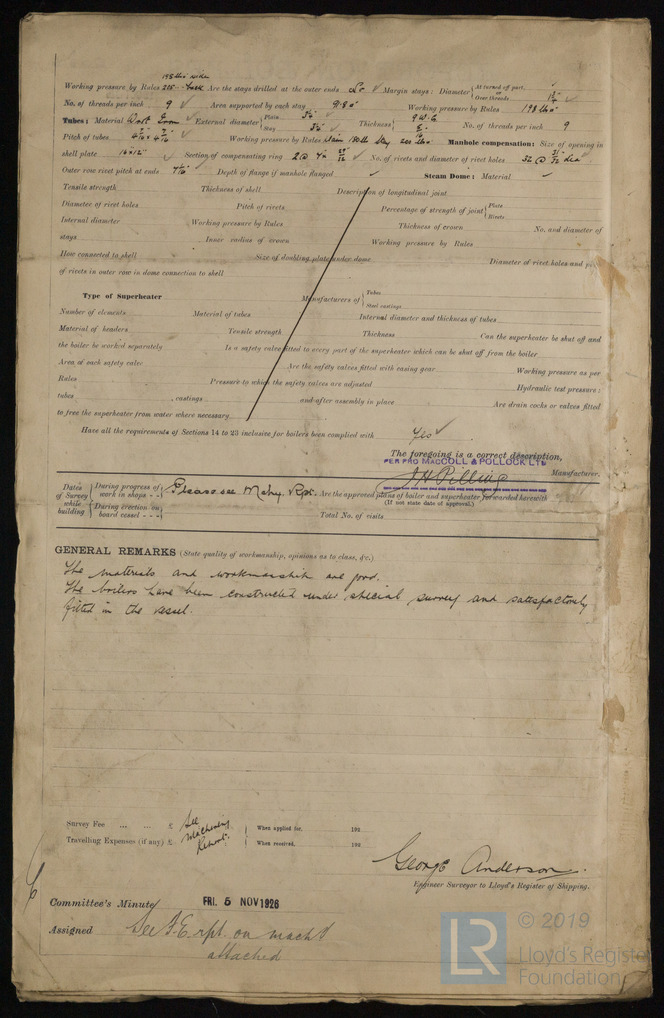 195 lbs wider
Working pressure by Rules 205 Back Are the stays drilled at the outer ends No Margin stays: Diameter At turned off part, or Over threads 1¾
No. of threads per inch 9 Area supported by each stay 91.80 Working pressure by Rules 198 lbs
Tubes: Material Wrot Iron External diameter Plain 3¼ Stay 3¼ Thickness 9 W.G. No. of threads per inch 9
Pitch of tubes Working pressure by Rules Plain 180 lbs Stay 200 lbs Manhole compensation: Size of opening in
shell plate 16 x 12" Section of compensating ring No. of rivets and diameter of rivet holes 32 @ 31/32 dia
Outer row rivet pitch at ends Depth of flange if manhole flanged Steam Dome: Material
Tensile strength Thickness of shell Description of longitudinal joint
Diameter of rivet holes Pitch of rivets Percentage of strength of joint Plate Rivets
Internal diameter Working pressure by Rules Thickness of crown No. and diameter of
stays Inner radius of crown Working pressure by Rules
How connected to shell Size of doubling plate under dome Diameter of rivet holes and
of rivets in outer row in dome connection to shell
Type of Superheater Manufacturers of Tubes Steel castings
Number of elements Material of tubes Internal diameter and thickness of tubes
Material of headers Tensile strength Thickness Can the superheater be shut off and
the boiler be worked separately Is a safety valve fitted to every part of the superheater which can be shut off from the boiler
Area of each safety valve Are the safety valves fitted with easing gear Working pressure as per
Rules Pressure to which the safety valves are adjusted Hydraulic test pressure:
tubes , castings and after assembly in place Are drain cocks or valves fitted
to free the superheater from water where necessary
Have all the requirements of Sections 14 to 23 inclusive for boilers been complied with Yes
The foregoing is a correct description,
PER PRO MACCOLL & POLLOCK LTD
J H Pilling Manufacturer.
Dates of Survey while building During progress of work in shops - - During erection on board vessel - - - Please see Mchy. Rpt. Are the approved plans of boiler and superheater forwarded herewith
(If not state date of approval.)
Total No. of visits
GENERAL REMARKS (State quality of workmanship, opinions as to class, &c.)
The materials and workmanship are good.
The boilers have been constructed under special survey and satisfactorily
fitted in the vessel.
Survey Fee ... ... £ See Machinery Report. When applied for, 192
Travelling Expenses (if any) £ When received, 192
George Anderson.
Engineer Surveyor to Lloyd's Register of Shipping.
Committee's Minute FRI. 5 NOV 1926
Assigned See F.E. rpt. on machy
attached
© 2019
LR Lloyd's Register
Foundation